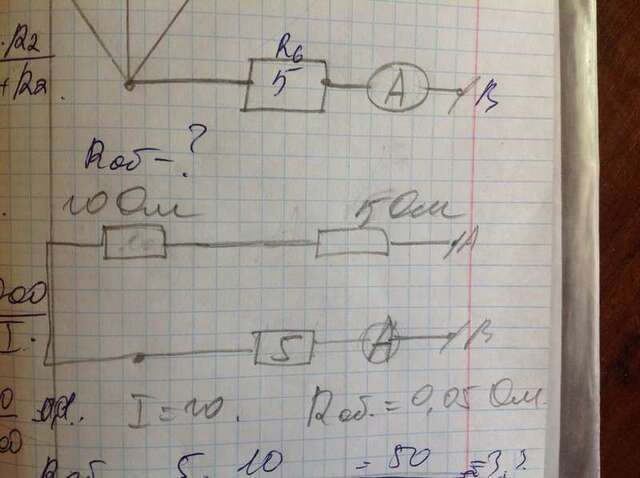 · R2
+ R2.
R6
5
A
B
Rоб – ?
10 Ом
5 Ом
A
5
A
B
I.
I = 10.
Rоб. = 0,05 Ом
Rоб
5 · 10
= 50
= 3,3